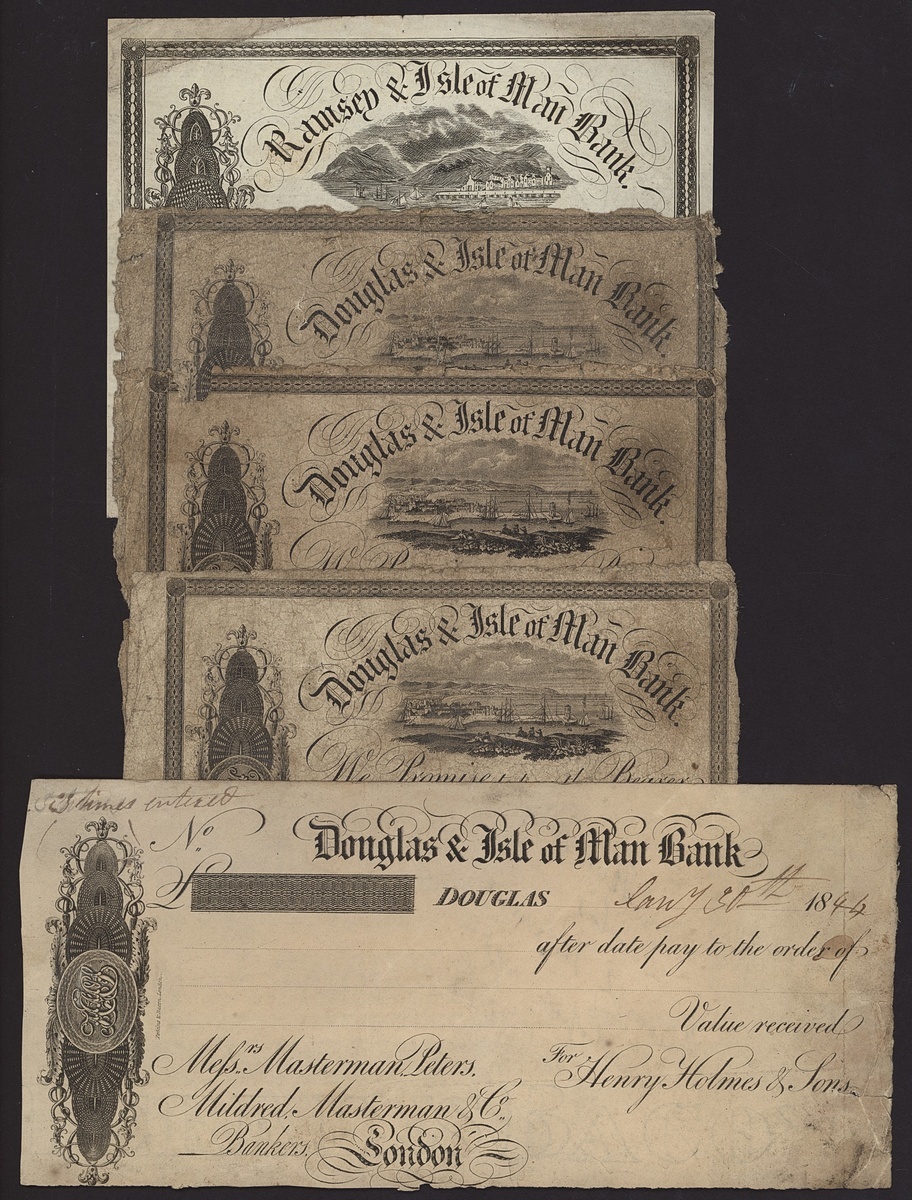 Ramsey & Isle of Man Bank.
Douglas & Isle of Man Bank.
Douglas & Isle of Man Bank.
Douglas & Isle of Man Bank.
We Promise to pay the Bearer
times entered
No.
Douglas & Isle of Man Bank
£ DOUGLAS Jany 30th 1844
after date pay to the order of
Value received
Messrs. Masterman, Peters,
For Henry Holmes & Sons.
Mildred, Masterman & Co.
Bankers, London